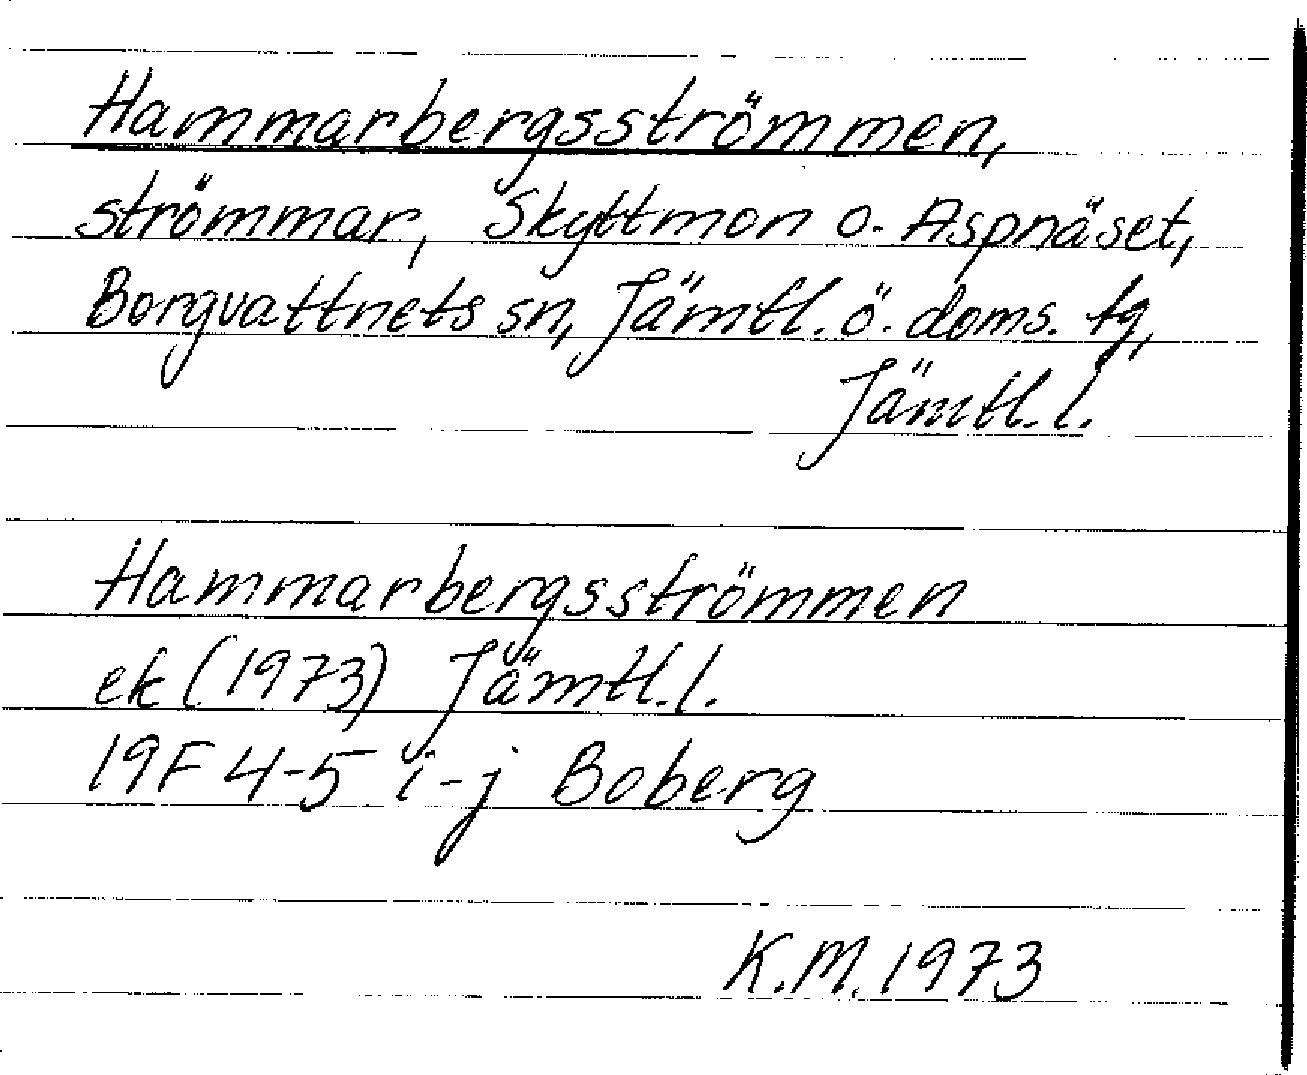 Hammarbergsströmmen,
strömmar, Skyttmon o. Aspnäset,
Borgvattnets sn, Jämtl. ö. doms. tg,
Jämtl. l.
Hammarbergsströmmen
ek (1973) Jämtl. l.
19F 4-5 i-j Boberg
K.M. 1973